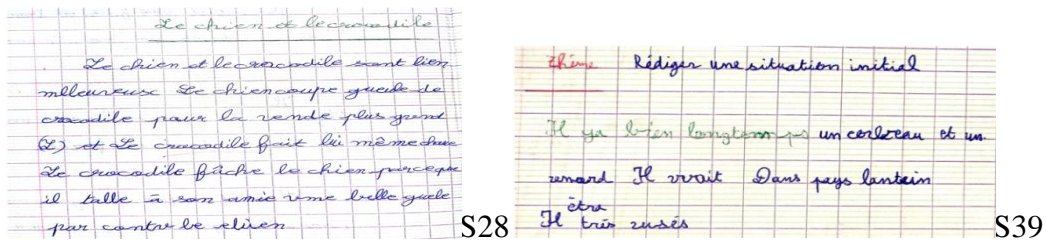 Le chien et le crocodile
Le chien et le crocodile sont bien
mlleureuse Le chien coupe gueule de
crocodile pour la rende plus grend
(L) et Le crocodile fait lui même chose
Le crocodile fâche le chien parceque
il talle à son amie une belle guele
par contre be chien
S28
thème Rédiger une situation initial
Il ya bien longtemps un corbeau et un
renard Il vvait Dans pays lantain
être
Il très rusés
S39